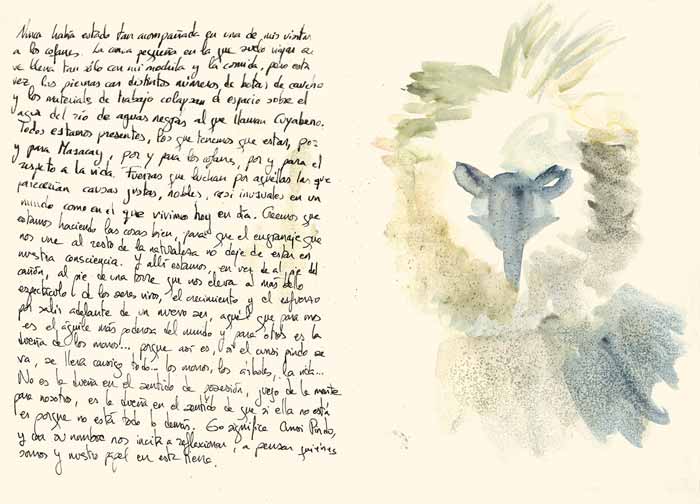 Nunca había estado tan acompañada en una de mis visitas
a los cofanes. La canoa pequeña en la que suelo viajar se
ve llena tan sólo con mi mochila y la comida, pero esta
vez las piernas con distintos números de botas de caucho
y los materiales de trabajo colapsan el espacio sobre el
agua del río de aguas negras al que llaman Cuyabeno.
Todos estamos presentes, los que tenemos que estar, por
y para Masacay, por y para los cofanes, por y para el
respeto a la vida. Fuerzas que luchan por aquellas las que
parecerían causas justas, nobles, casi inusuales en un
mundo como en el que vivimos hoy en día. Creemos que
estamos haciendo las cosas bien, para que el engranaje que
nos une al resto de la naturaleza no deje de estar en
nuestra consciencia. Y allí estamos, en vez de al pie del
cañón, al pie de una torre que nos eleva al más bello
espectáculo de los seres vivos, el crecimiento y el esfuerzo
por salir adelante de un nuevo ser, aquel que para mos
es el águila más poderosa del mundo y para otros es la
dueña de los monos... porque así es, si el cunsi pindo se
va, se lleva consigo todo... los monos, los árboles, la vida...
No es la dueña en el sentido de posesión, juego de la mente
para nosotros, es la dueña en el sentido de que si ella no está
es porque no está todo lo demás. Eso significa Cunsi Pindo,
y con su nombre nos incita a reflexionar, a pensar quiénes
somos y nuestro papel en esta tierra.